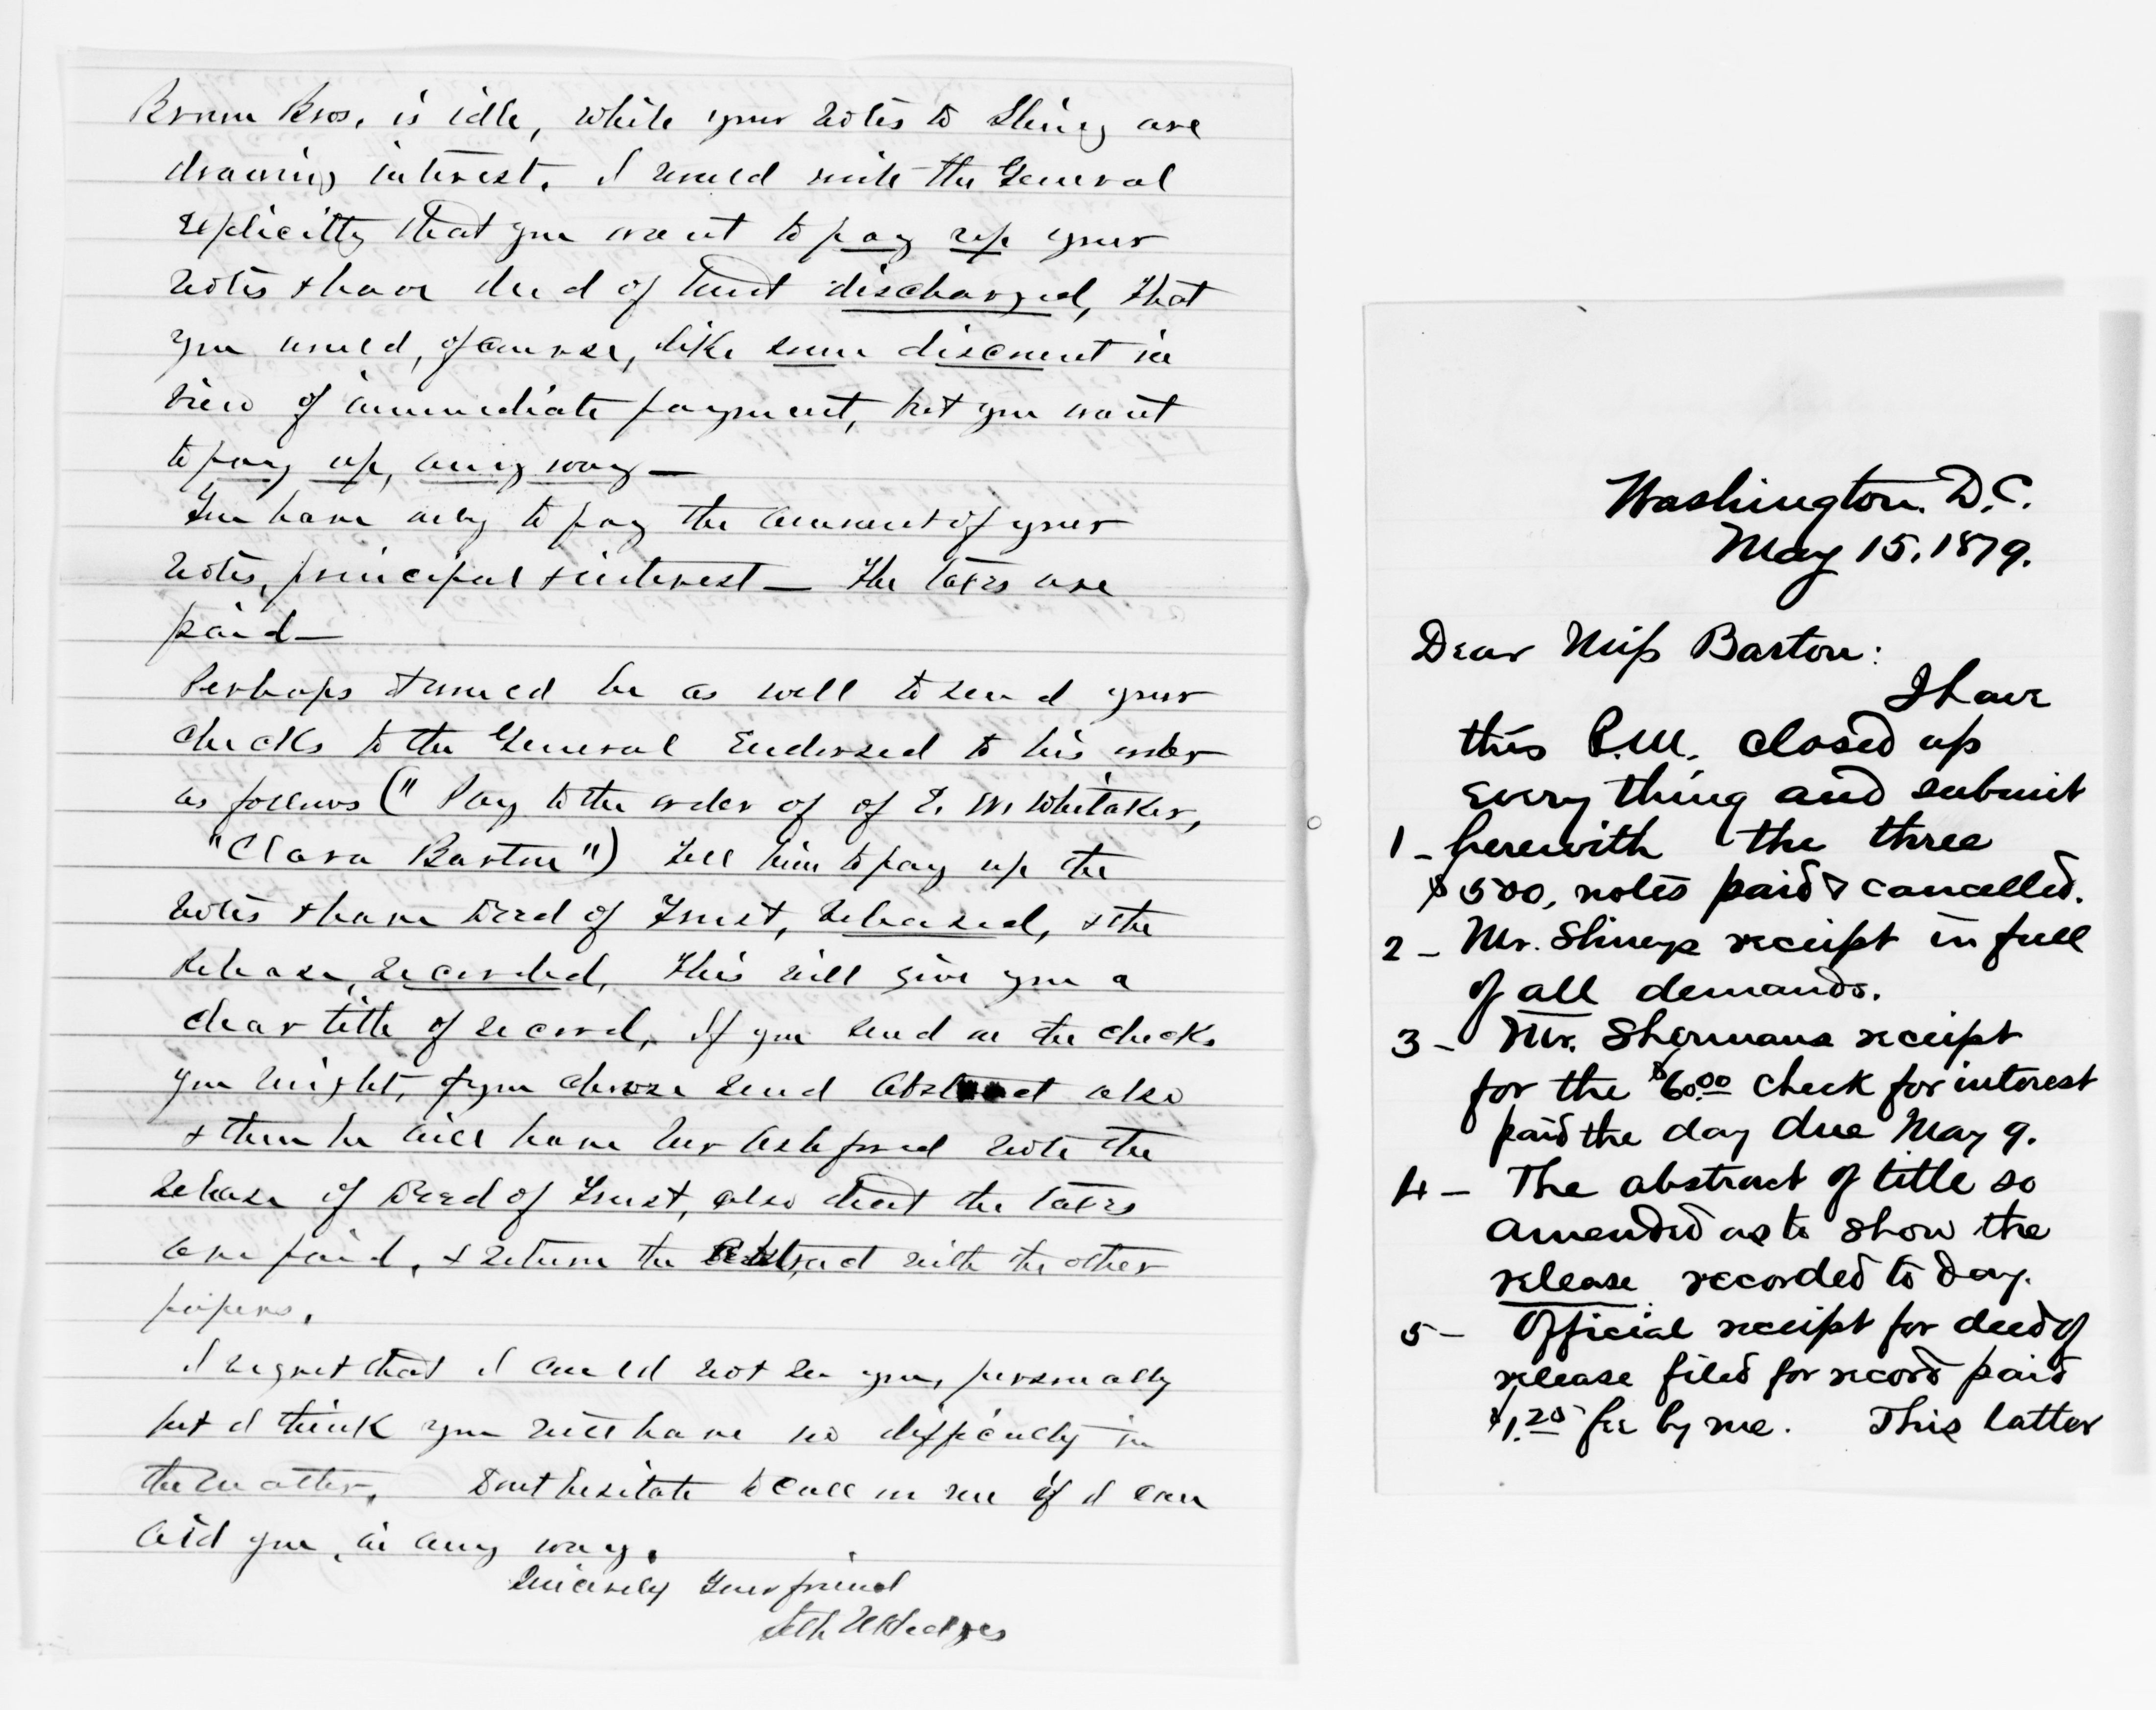 Brown Bros. is idle, while your notes to Shiney are
drawing interest. I would write the General
explicitly that you want to pay up your
notes & have deed of trust discharged, that
you would, of course, like some discount in
view of immediate payment, but you want
to pay up, any way —
You have only to pay the amount of your
notes, principal & interest — The taxes are
paid —
Perhaps it would be as well to send your
checks to the General Endorsed to his order
as follows (" Pay to the order of of E. W. Whitaker,
"Clara Barton") Tell him to pay up the
notes & have Deed of Trust, released, & the
release, recorded, This will give you a
clear title of record, If you send on the checks
you might, if you choose send Abstract also
& then he will have her note the
release of Deed of Trust, also that the taxes
are paid, & return the Abstract with the other
papers.
I regret that I could not see you, personally
but I think you will have no difficulty in
the matter. Dont hesitate to call on me if I can
aid you, in any way.
Sincerely Your friend
Washington. D.C.
May 15. 1879.
Dear Miss Barton:
I have
this P.M. closed up
every thing and submit
1 - herewith the three
$500, notes paid & cancelled.
2 - Mr. Shineys receipt in full
of all demands.
3 - Mr. Shermans receipt
for the $60.00 check for interest
paid the day due May 9.
4 - The abstract of title so
amended as to show the
release recorded to day.
5 - Official receipt for deed of
release filed for record paid
$1.25 fee by me. This latter